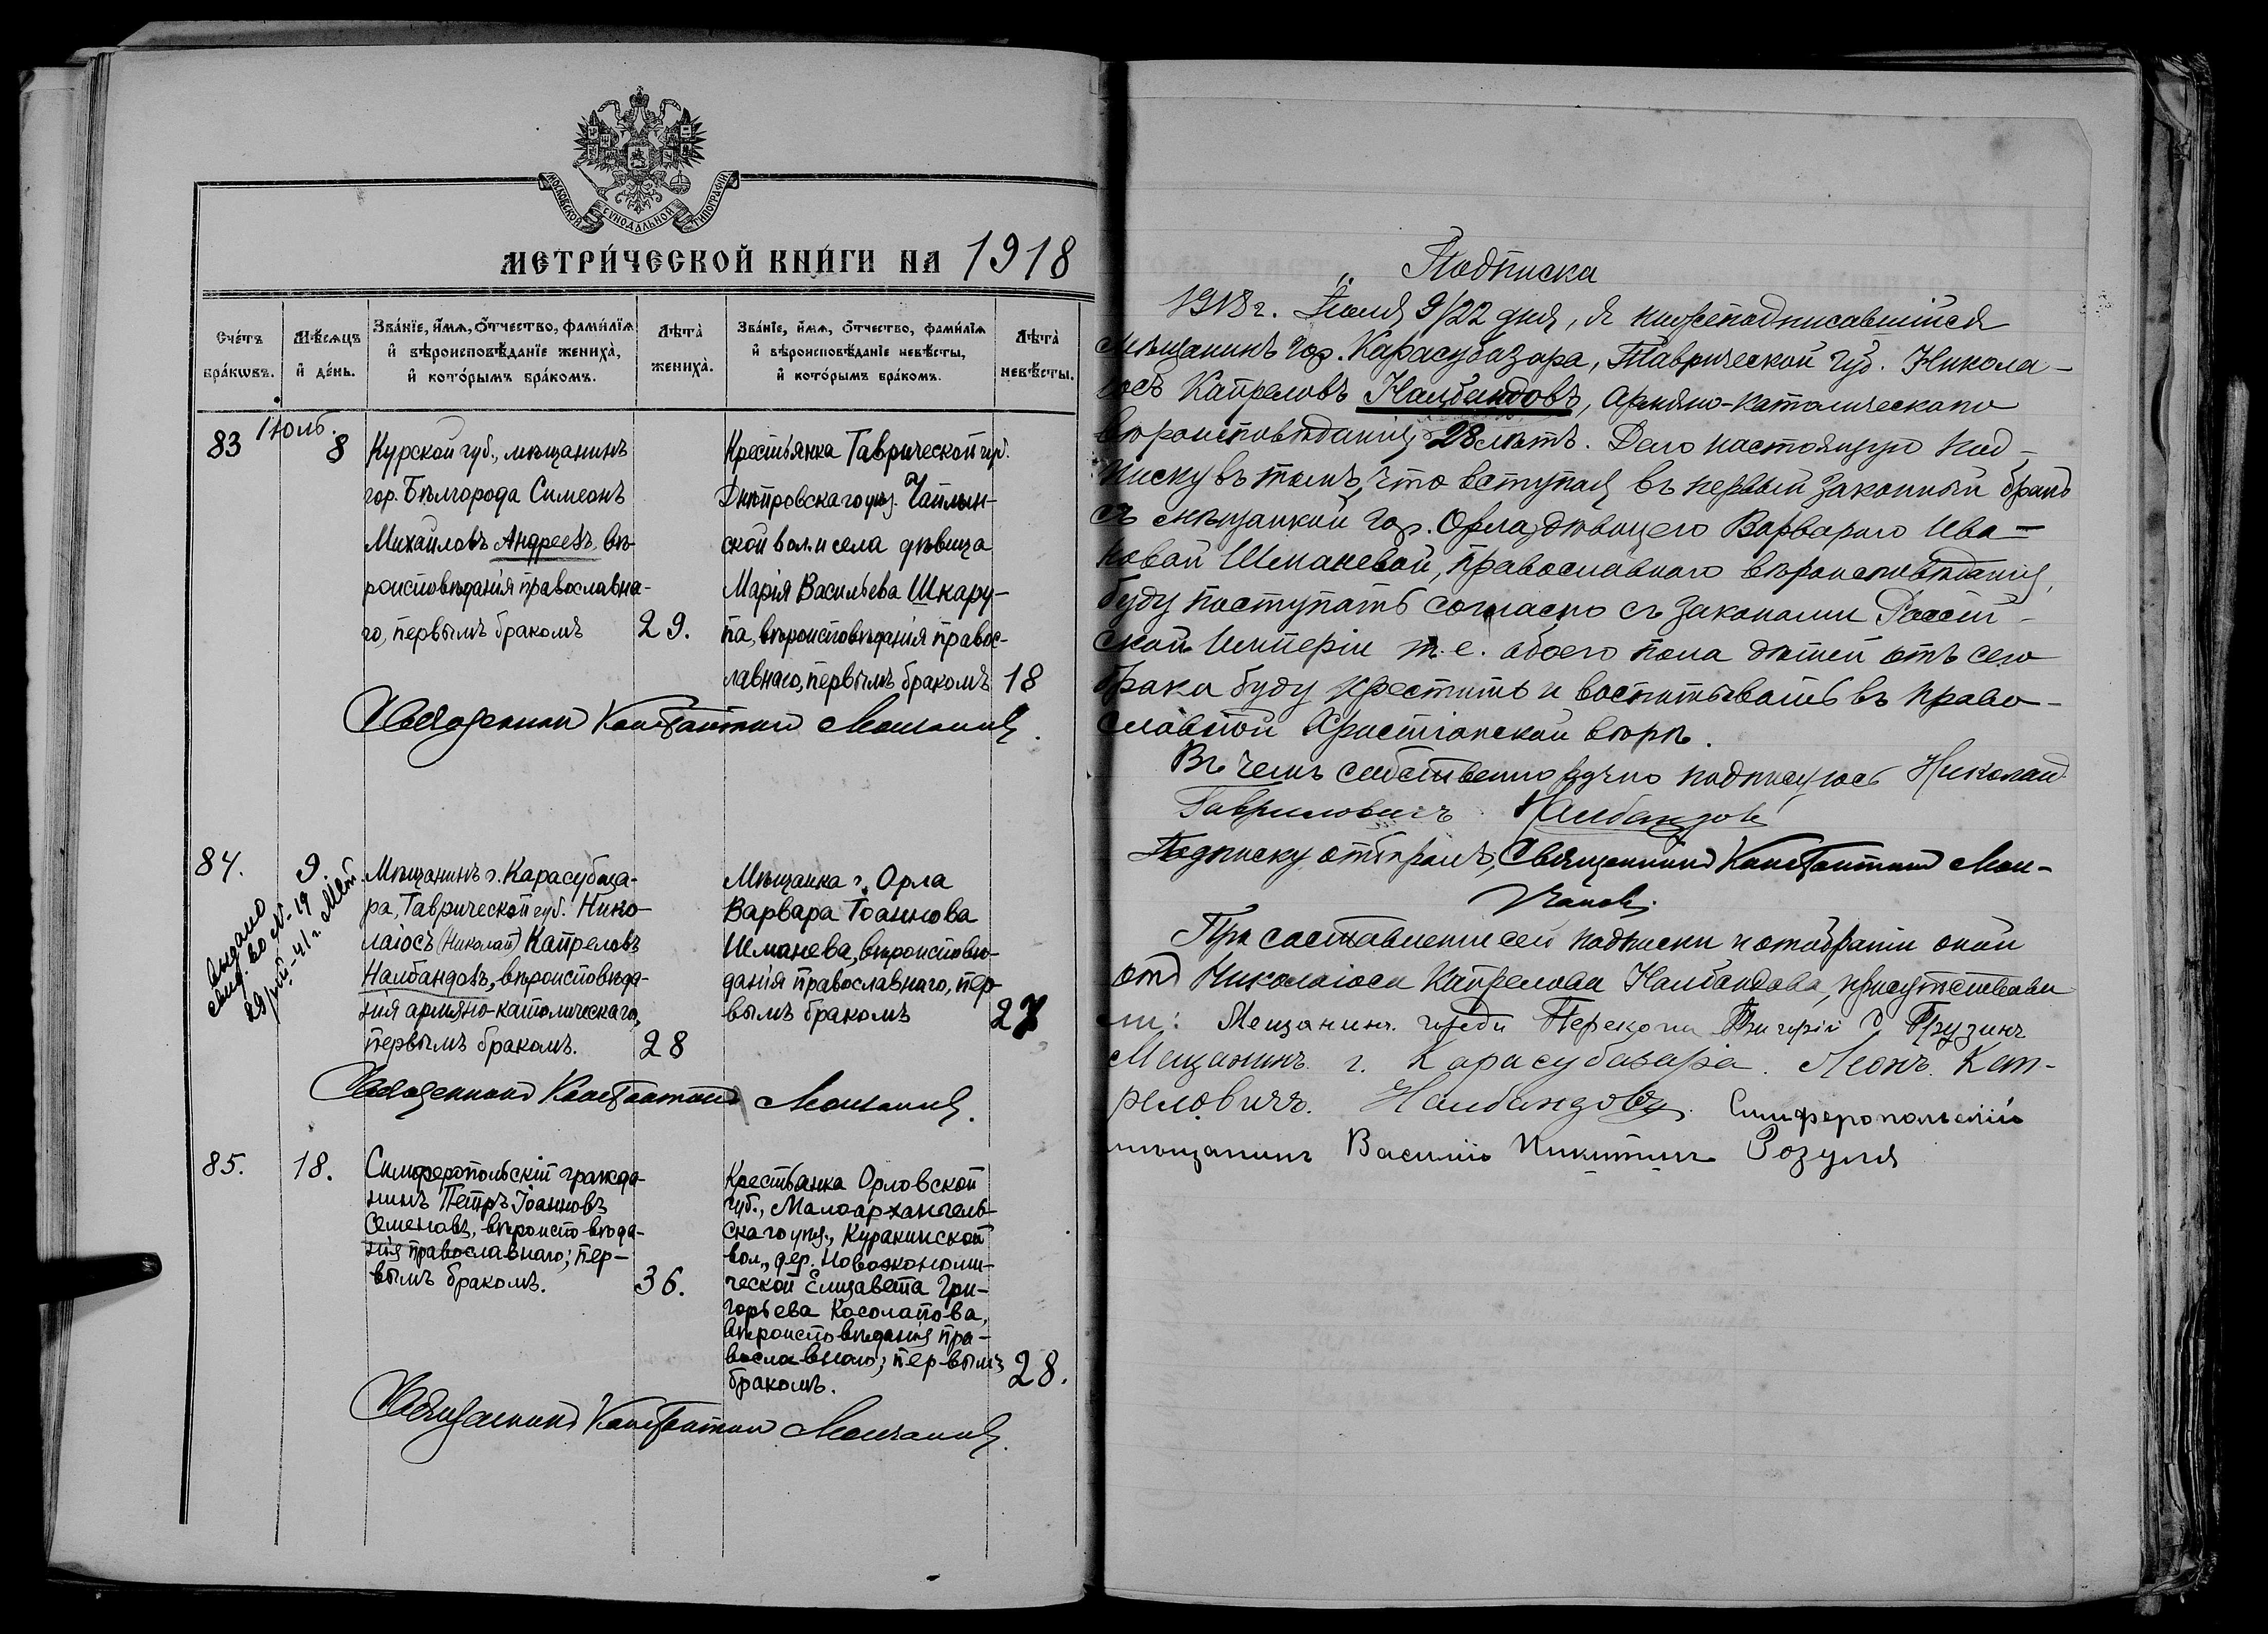 МОСКОВСКОЙ СУНОДАЛЬНОЙ ТИПОГРАФІИ
МЕТРИ́ЧЕСКОЙ КНИ́ГИ НА 1918
Сче́тъ бра́кωвъ.
Мѣ́сѧцъ и҆ де́нь.
Зва́нїе, и҆́мѧ, ѻ҆́тчество, фами́лїѧ
и҆ вѣроисповѣ́данїе жениха̀,
и҆ кото́рымъ бра́комъ.
Лѣ́та жениха̀.
Зва́нїе, и҆́мѧ, ѻ҆́тчество, фами́лїѧ
и҆ вѣроисповѣ́данїе невѣ́сты,
и҆ кото́рымъ бра́комъ.
Лѣ́та невѣ́сты.
83
Іюль.
8
Курской губ., мѣщанинъ
гор. Бѣлгорода Симеонъ
Михайловъ Андреевъ, вѣ-
роисповѣданія православна-
го, первымъ бракомъ
29.
Крестьянка Таврической губ.
Днѣпровскаго уѣз. Чаплын-
ской вол. и села дѣвица
Марія Васильева Шкару-
па, вѣроисповѣданія правос-
лавнаго, первымъ бракомъ
18
Священникъ Константинъ Молчановъ.
84.
9.
выдано
свид. во № 19
29/VII-41 г.
Мѣщанинъ г. Карасубаза-
ра, Таврической губ. Нико-
лаіосъ (Николай) Капреловъ
Налбандовъ, вѣроисповѣда-
нія армяно-католическаго,
первымъ бракомъ.
28
Мѣщанка г. Орла
Варвара Іоаннова
Шманева, вѣроисповѣ-
данія православнаго, пер-
вымъ бракомъ
27
Священникъ Константинъ Молчановъ.
85.
18.
Симферопольскій гражда-
нинъ Петръ Іоанновъ
Семеновъ, вѣроисповѣда-
нія православнаго; пер-
вымъ бракомъ.
36.
Крестьянка Орловской
губ., Малоархангель-
скаго уѣз., Куракинской
вол., дер. Новоэкономи-
ческой Елизавета Гри-
горьева Косолапова,
вѣроисповѣданія пра-
вославнаго; первымъ
бракомъ.
28.
Священникъ Константинъ Молчановъ.
Подписка
1918 г. Іюля 9/22 дня, я нижеподписавшійся
мѣщанинъ гор. Карасубазара, Таврической губ. Никола-
іосъ Капреловъ Налбандовъ, Армяно-католическаго
вѣроисповѣданія, 28 лѣтъ. Даю настоящую под-
писку въ томъ, что вступая въ первый законный бракъ
съ мѣщанкой гор. Орла, дѣвицею Варварою Ива-
новой Шманевой, православнаго вѣроисповѣданія,
буду поступать согласно съ законами Россій-
ской Имперіи т. е. обоего пола дѣтей отъ сего
брака буду крестить и воспитывать въ право-
славной Христіанской вѣрѣ.
Въ чемъ собственноручно подписуюсь Николай
Гавриловичъ Налбандовъ
Подписку отбиралъ, Священникъ Константинъ Мол-
чановъ.
При составленіи сей подписки и отобраніи оной
отъ Николаіоса Капрелова Налбандова, присутствова
ли: Мещанинъ города Перекопа Григорій Г. Грузинъ
Мещанинъ г. Карасубазара. Леонъ Кап-
реловичъ. Налбандовъ. Симферопольскій
мѣщанинъ Василій Никитинъ Розуля